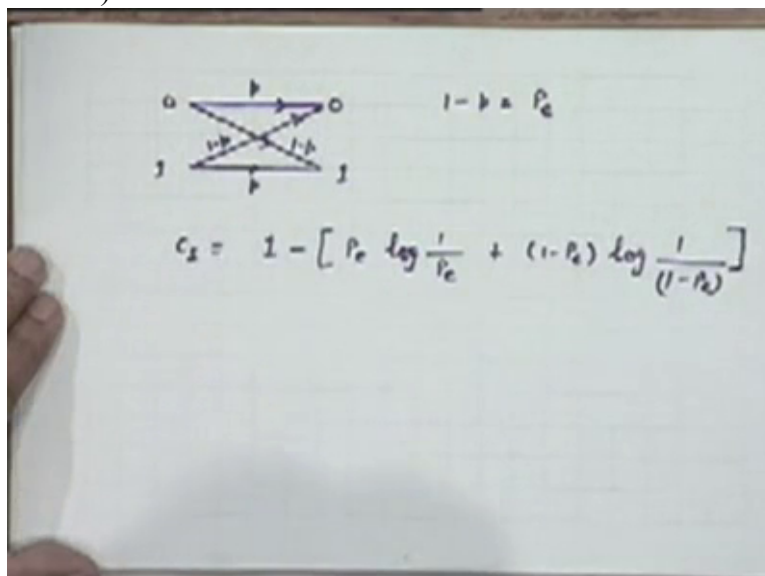 p
0 0 1-p = Pe
1-p 1-p
1 1
p
Cs = 1 - [ Pe log 1/Pe + (1-Pe) log 1/(1-Pe) ]